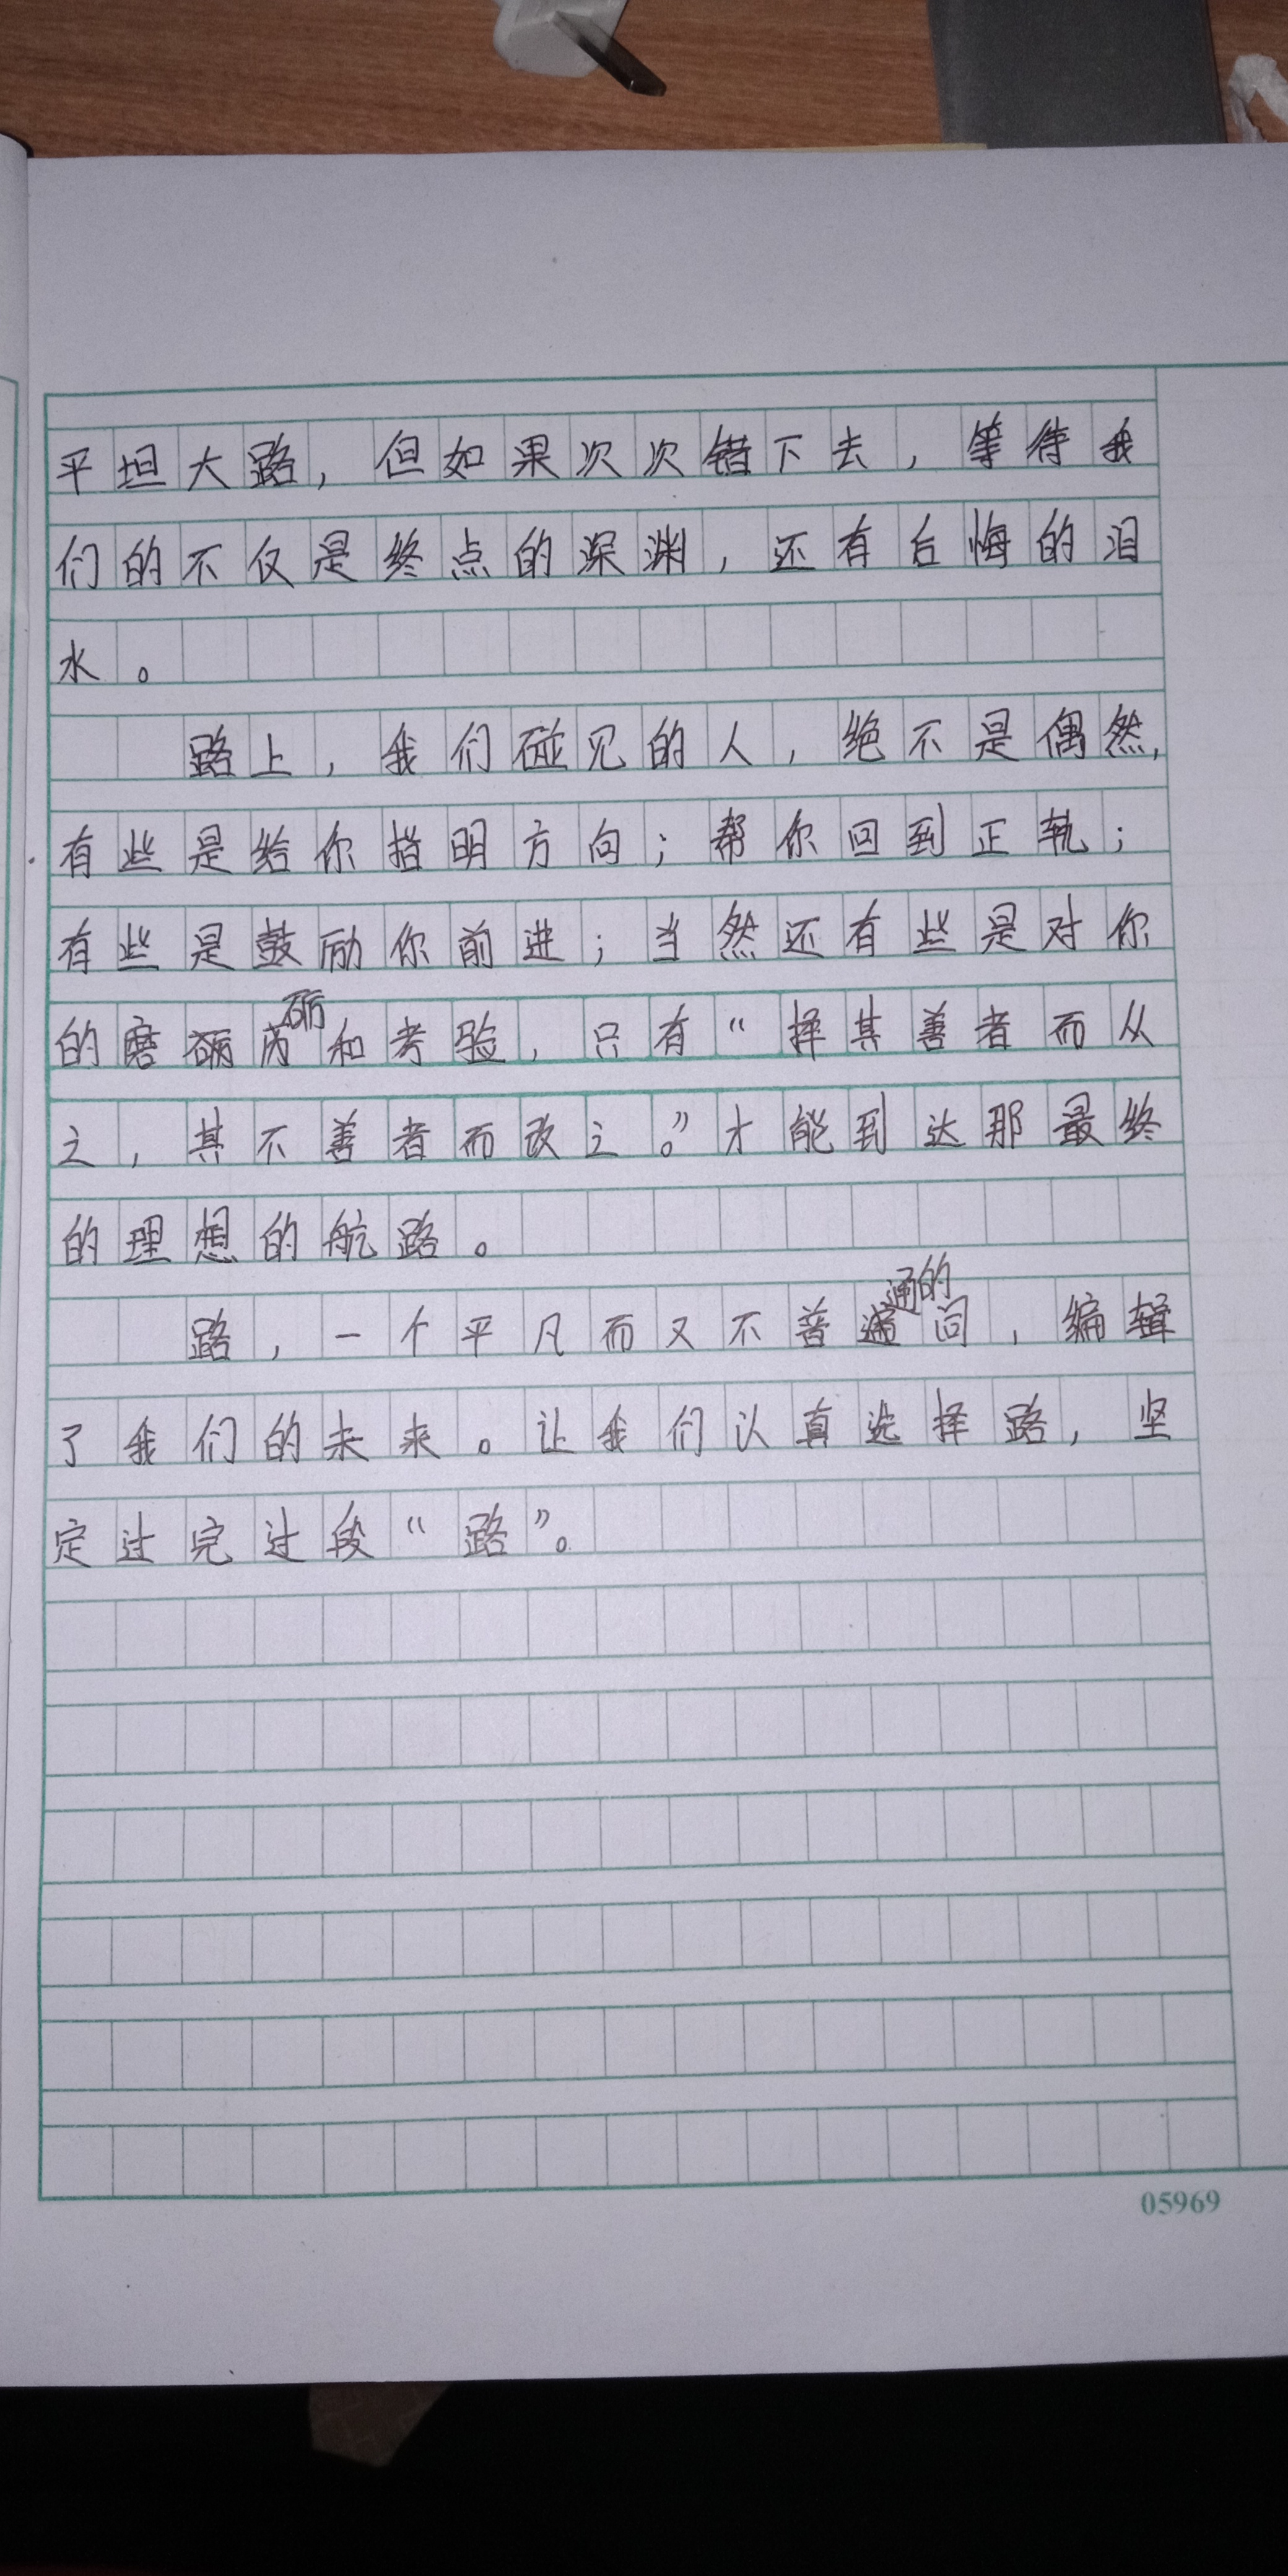 平坦大路，但如果次次错下去，等待我
们的不仅是终点的深渊，还有后悔的泪
水。
路上，我们碰见的人，绝不是偶然，
有些是给你指明方向；帮你回到正轨；
有些是鼓励你前进；当然还有些是对你
的磨砺和考验，只有“择其善者而从
之，其不善者而改之。”才能到达那最终
的理想的航路。
路，一个平凡而又不普通的词，编辑
了我们的未来。让我们认真选择路，坚
定过完过段“路”。
05969